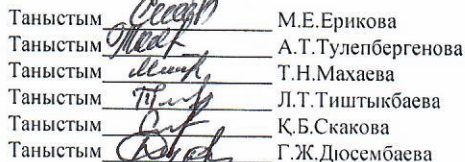 Таныстым М.Е.Ерикова
Таныстым А.Т.Тулепбергенова
Таныстым Т.Н.Махаева
Таныстым Л.Т.Тиштыкбаева
Таныстым Қ.Б.Скакова
Таныстым Г.Ж.Дюсембаева